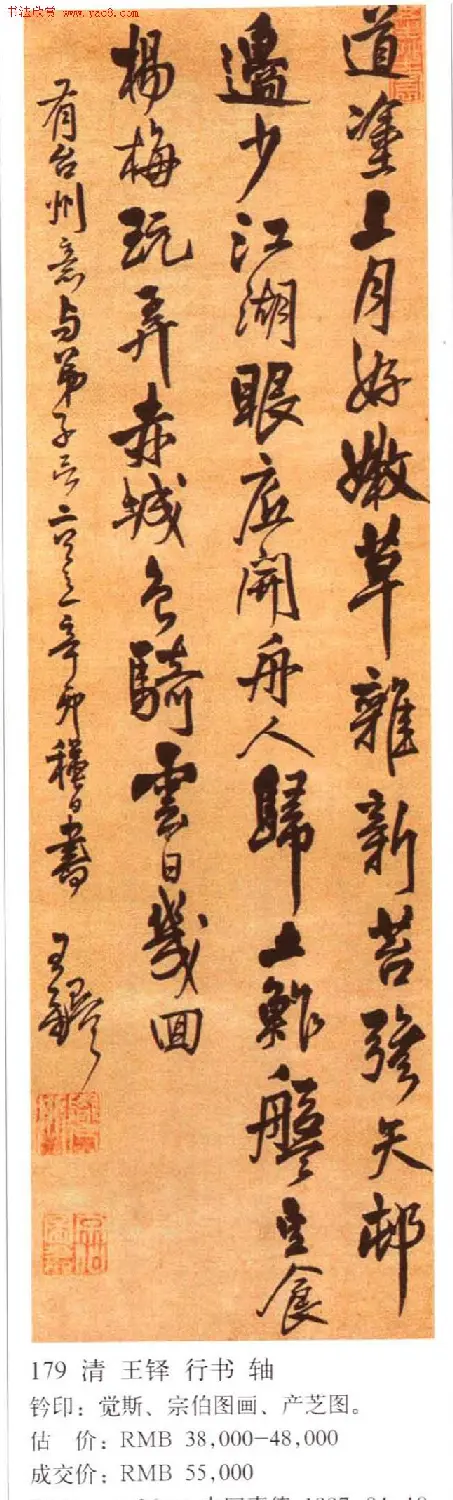 书法欣赏
www.yac8.com
道塗上月好嫩草雜新苔發矢邨
邊少江湖眼店開舟人歸土鮓盤生食
楊梅玩弄赤城色騎雲日幾回
有台州意与弟子 辛卯 日書 王鐸
179 清 王铎 行书 轴
钤印：觉斯、宗伯图画、产芝图。
估 价：RMB 38,000-48,000
成交价：RMB 55,000